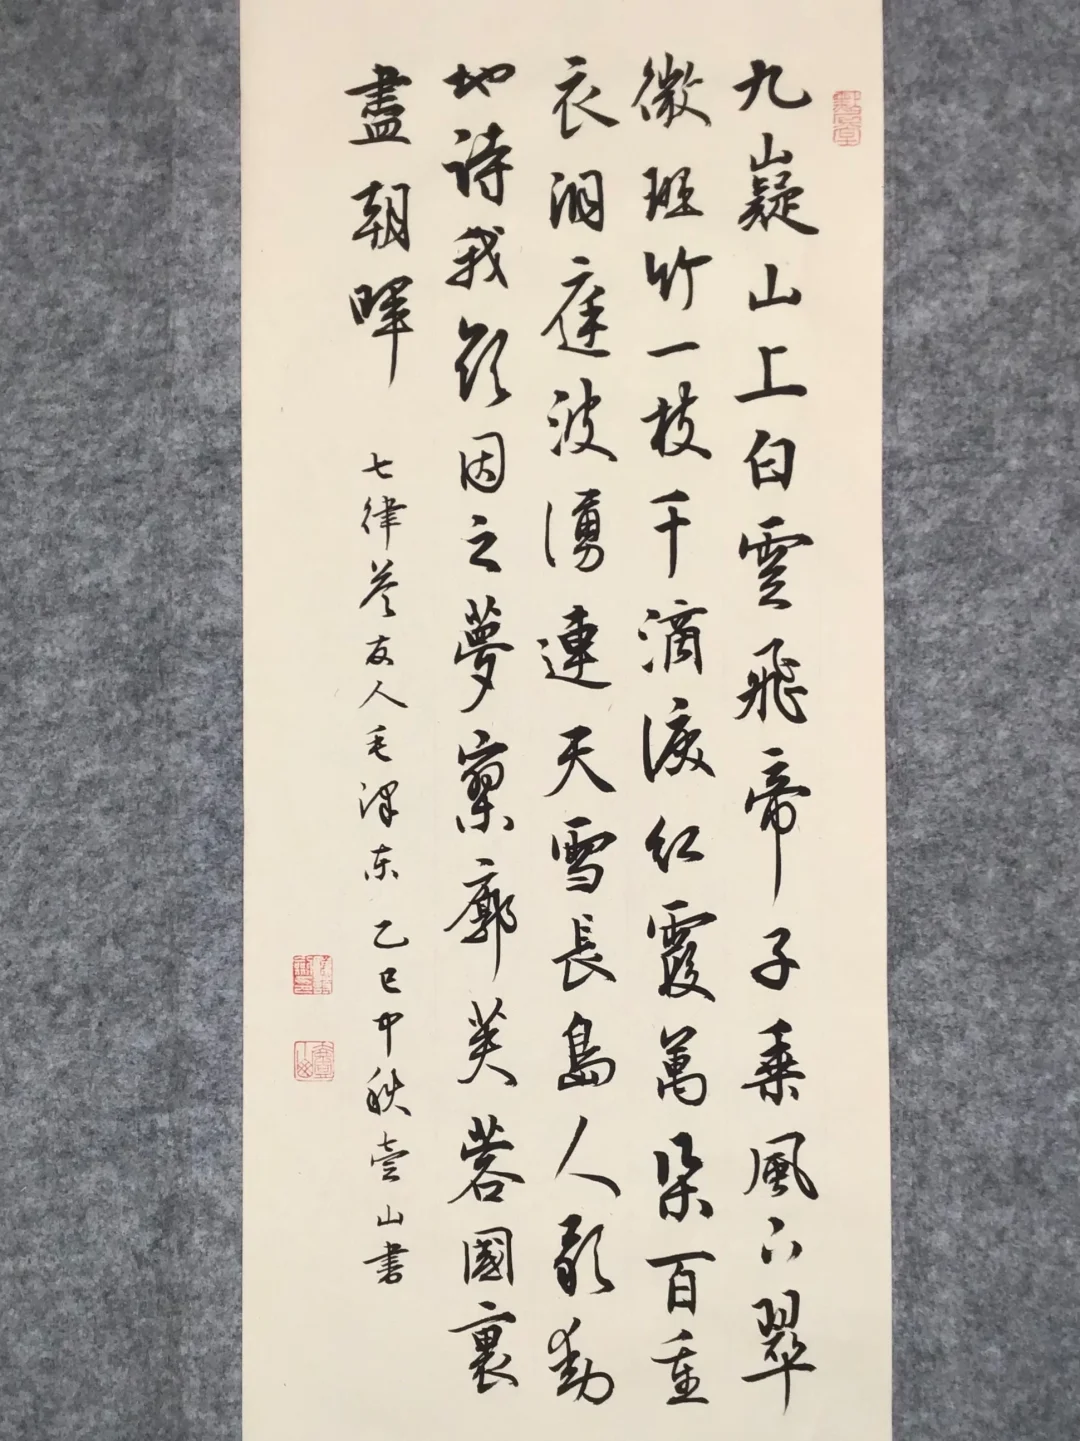 九嶷山上白雲飛帝子乗風下翠
微班竹一枝千滴淚紅霞萬朵百重
衣洞庭波湧連天雪長島人歌動
地詩我欲因之夢寥廓芙蓉國裏
盡朝暉
七律答友人毛澤东乙巳中秋壹山書